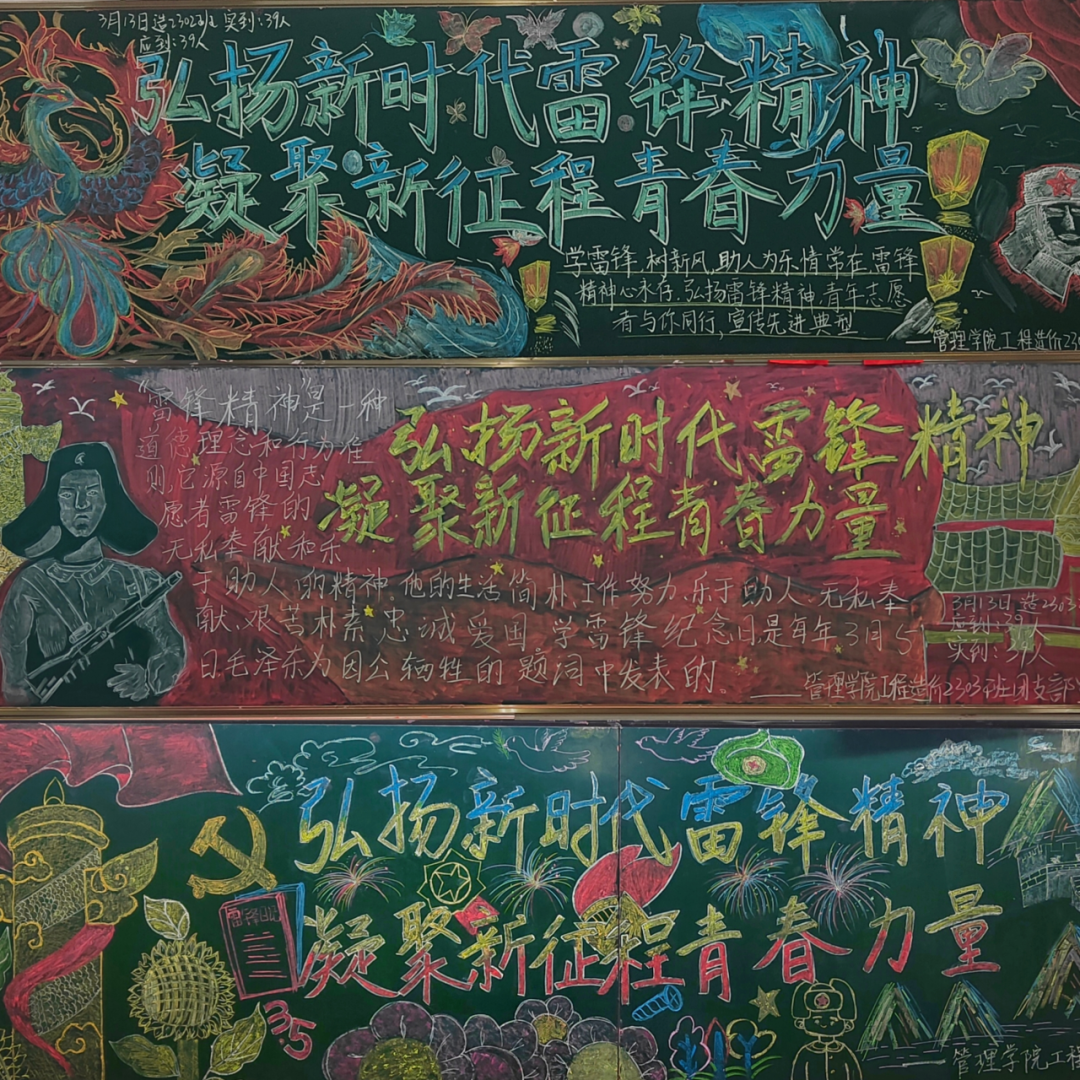 3月13日造价2302班 实到:39人
应到:39人
弘扬新时代雷锋精神
凝聚新征程青春力量
学雷锋,树新风,助人为乐情常在,雷锋
精神心永存,弘扬雷锋精神,青年志愿
者与你同行,宣传先进典型
——管理学院工程造价230
"雷锋精神"是一种
道德理念和行为准
则,它源自中国志
愿者雷锋的
无私奉献和乐
于助人的精神.他的生活简朴、工作努力、乐于助人、无私奉
献、艰苦朴素、忠诚爱国.学雷锋纪念日是每年3月5
日毛泽东为因公牺牲的题词中发表的。
弘扬新时代雷锋精神
凝聚新征程青春力量
3月13日 造2303
应到:39人
实到:39人
——管理学院工程造价2303班团支部
弘扬新时代雷锋精神
凝聚新征程青春力量
3.5
管理学院工程